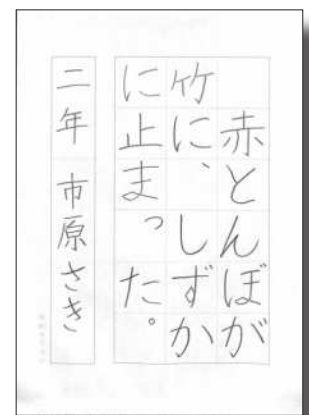 赤とんぼが
竹に、しずか
に止まった。
二年 市原さき